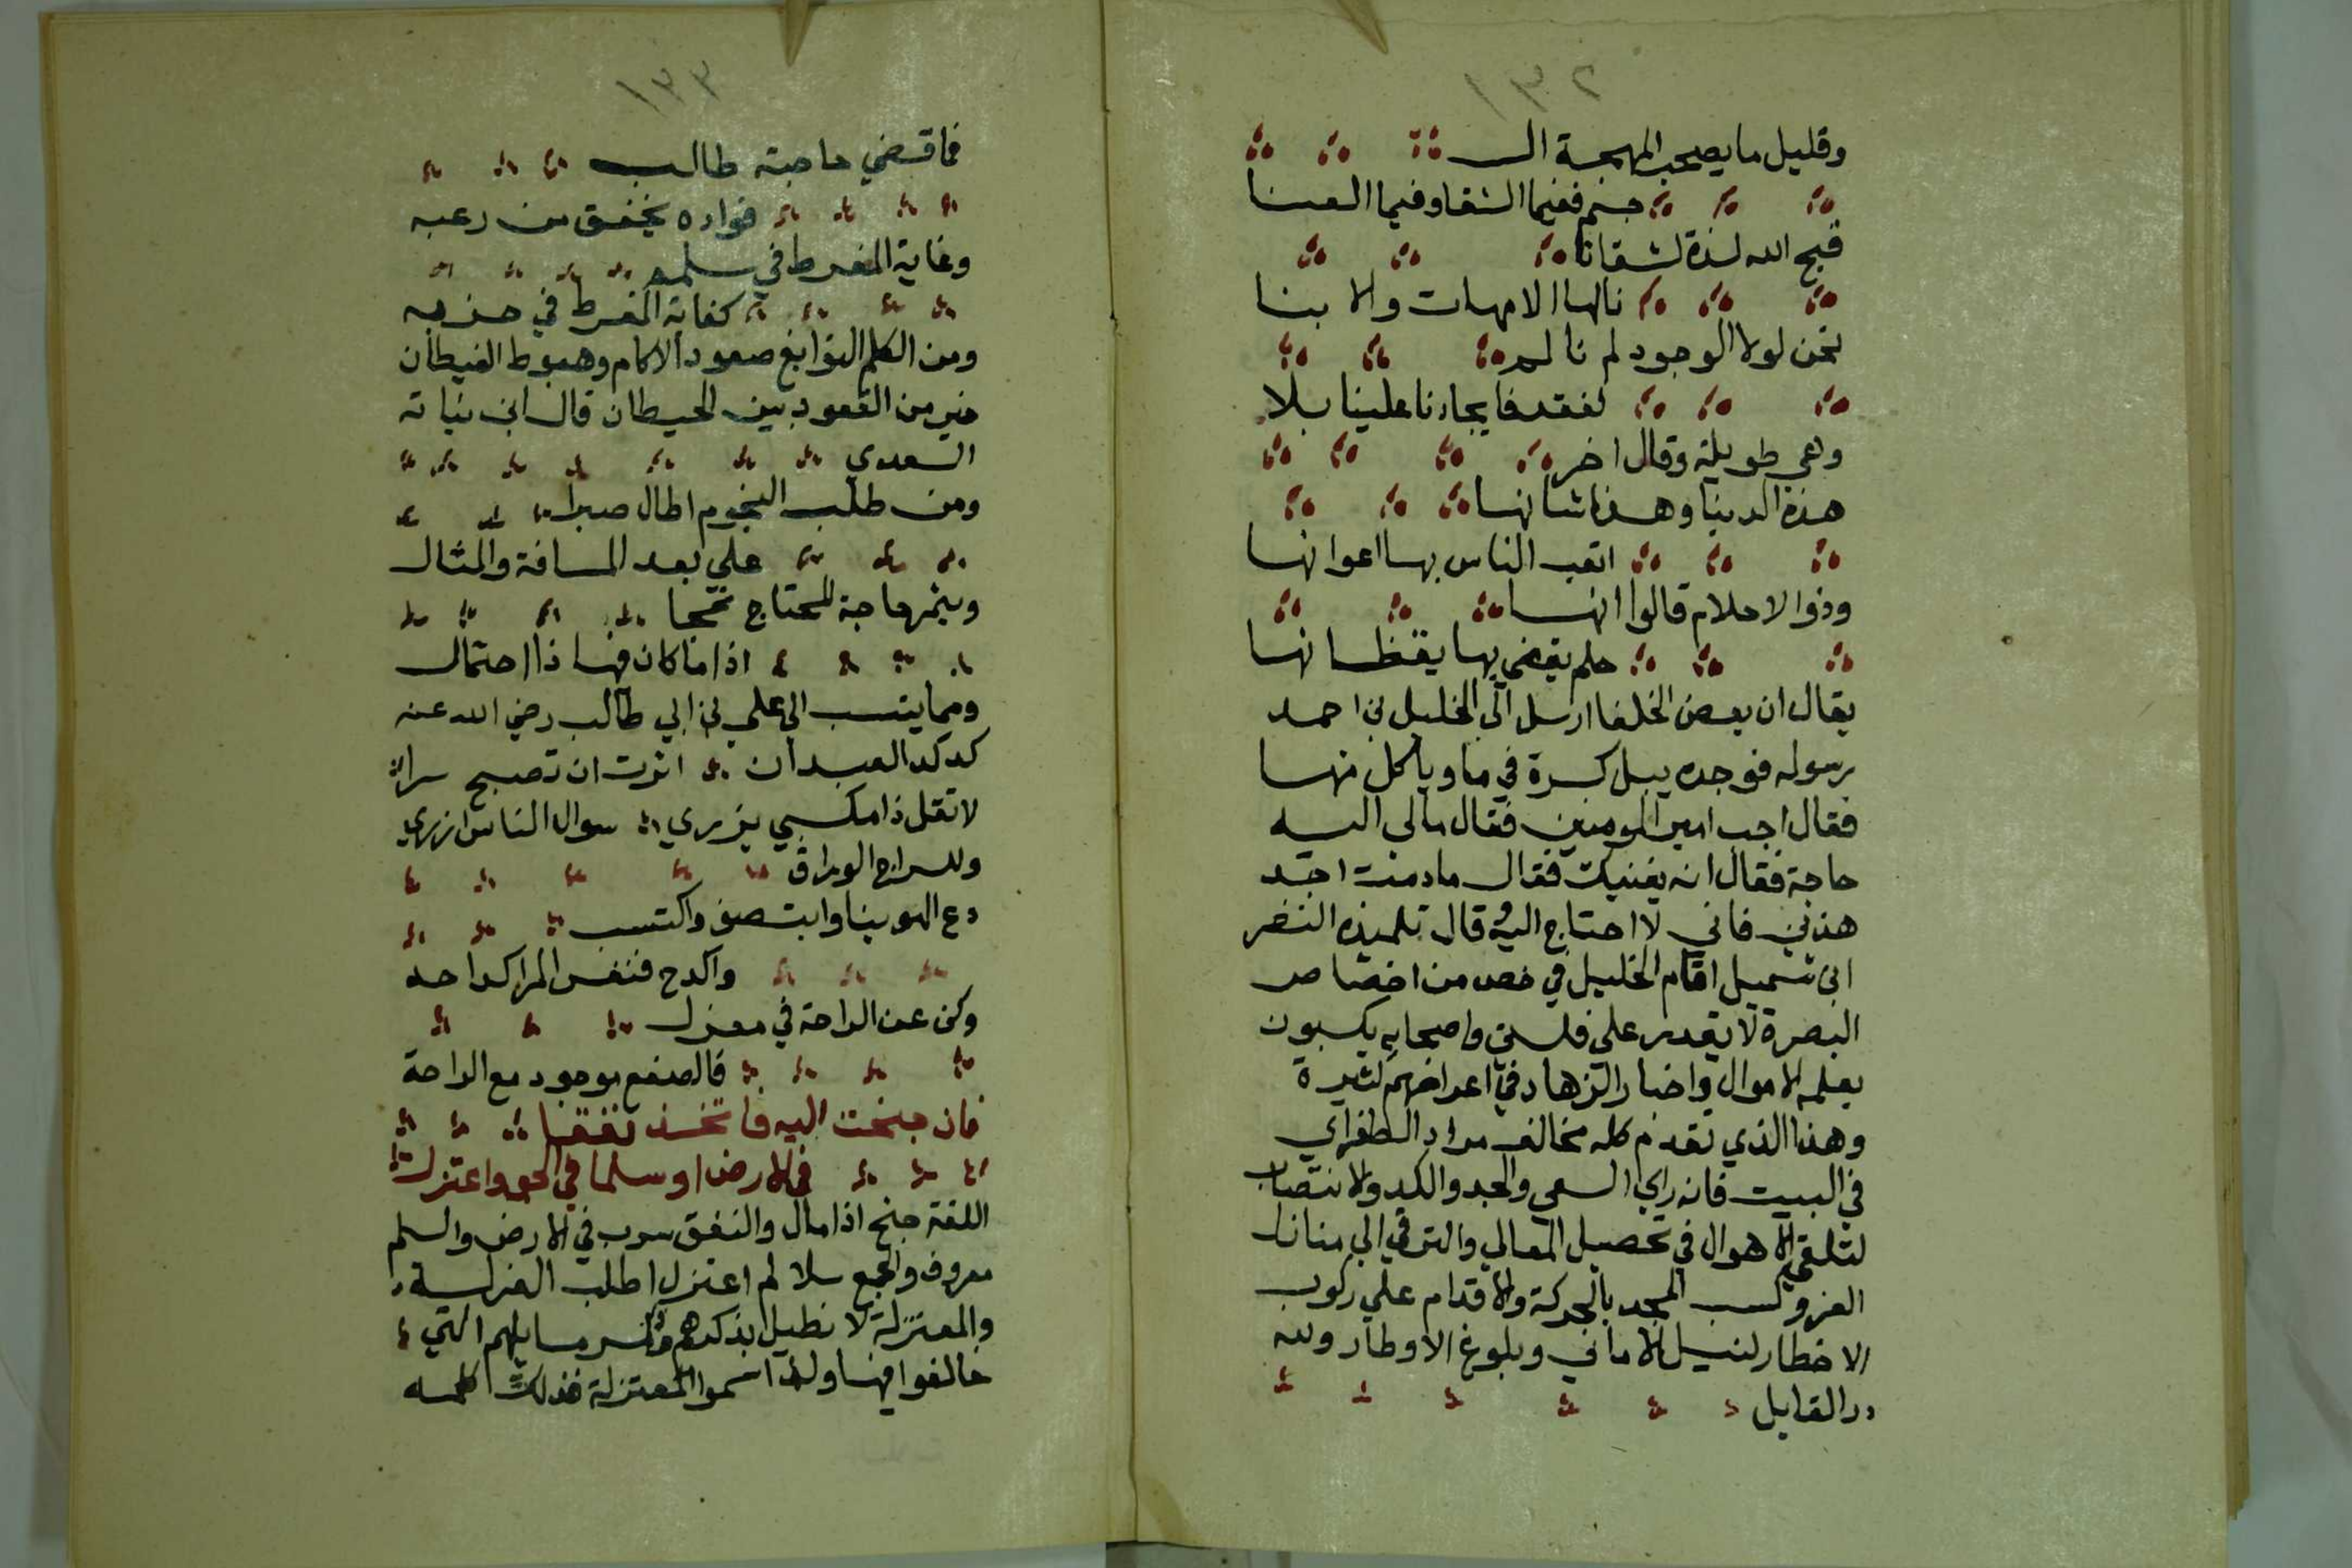 ١٣٢
وقليل ما يصحب المهجة الـ
جسم ففيما الشقا وفيما العنا
قبح الله لذة لشقانا
نالها الامهات والابنا
نحن لولا الوجود لم نالم
لفقد فايجادنا علينا بلا
وهي طويلة وقال اخر
هذه الدنيا وهذا شانها
اتعب الناس بها اعوانها
وذوا الاحلام قالوا انها
حلم يقضي بها يقظانها
يقال ان بعض الخلفا ارسل الي الخليل بن احمد
رسوله فوجده يبل كسرة في ما وياكل منها
فقال اجب امير المومنين فقال مالي اليه
حاجة فقال انه يغنيك فقال ما دمت اجد
هذين فاني لا احتاج اليه وقال تلميذه النضر
ابن شميل اقام الخليل في خص من اخصاص
البصرة لا يقدر علي فلسين واصحابه يكسبون
بعلمه الاموال واخبار الزهاد في اعراضهم كثيرة
وهذا الذي تقدم كله مخالف مراد الطغراي
في البيت فانه راي السعي والجد والكد والانتصاب
لتلقي الاهوال في تحصيل المعالي والترقي الي منازل
العز وكسب المجد بالحركة والاقدام علي ركوب
الاخطار لنيل الاماني وبلوغ الاوطار ولله
در القايل
١٣٣
فما قضي حاجته طالب
فواده يخفق من رعبه
وغاية المفرط في سلمه
كغاية المفرط في حزبه
ومن الكلم النوابغ صعود الاكام وهبوط الغيطان
خير من القعود بين الحيطان قال ابن نباته
السعدي
ومن طلب النجوم اطال صبرا
علي بعد المسافة والمثال
ويثمر حاجة المحتاج نجحا
اذا ما كان فيها ذا احتمال
ومما ينسب الي علي بن ابي طالب رضي الله عنه
كد كد العبد ان اثرت ان تصبح سرا
لا تقل ذا مكسبي يزري سوال الناس ازري
وللسراج الوراق
دع الهوينا وانتصف واكتسب
واكدح فنفس المرا كداحه
وكن عن الراحة في معزل
فالصفع موجود مع الراحة
فان جنحت اليه فاتخذ نفقا
في الارض او سلما في الجو واعتزل
اللغة جنح اذا مال والنفق سرب في الارض والسلم
معروف والجمع سلالم اعتزل اطلب العزلة
والمعتزلة لا نطيل بذكرهم وذكر مسايلهم التي
خالفوا فيها ولذا سموا المعتزلة فذلك كله